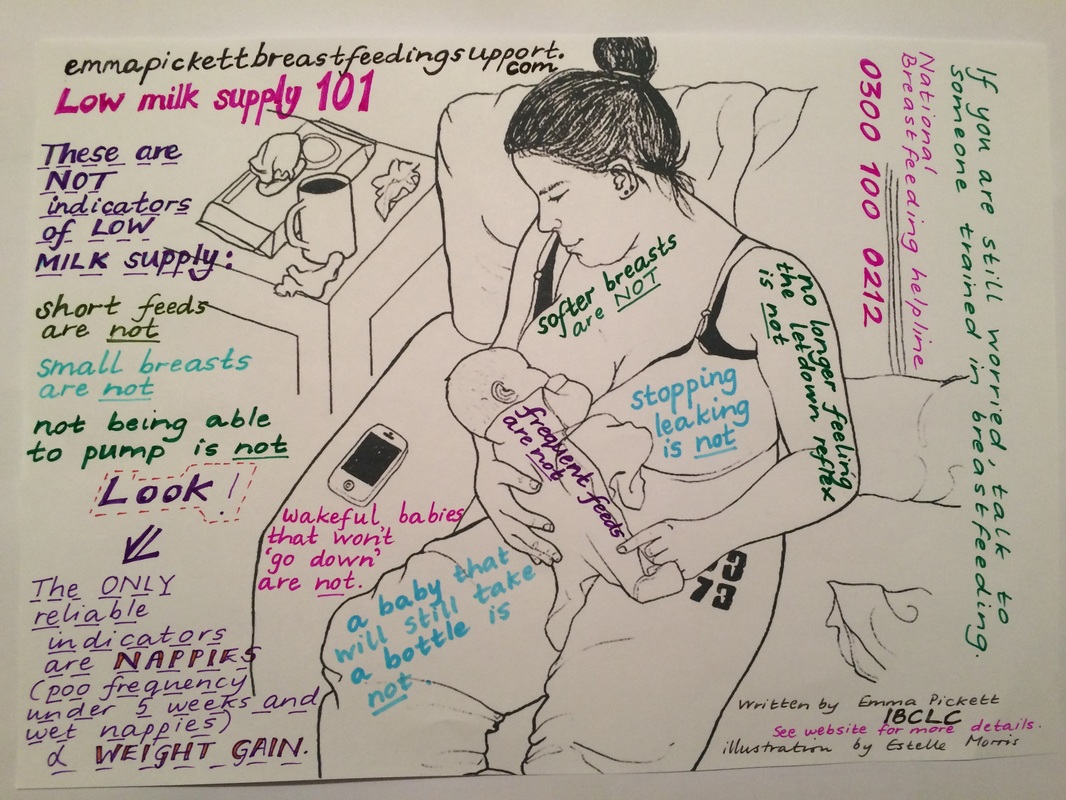 emmapickettbreastfeedingsupport.
com
Low milk supply 101
These are
NOT
indicators
of LOW
MILK supply:
short feeds
are not
small breasts
are not
not being able
to pump is not
Look!
The ONLY
reliable
indicators
are NAPPIES
(poo frequency
under 5 weeks and
wet nappies)
& WEIGHT GAIN.
softer breasts
are NOT
no longer feeling
the letdown reflex
is not
stopping
leaking
is not
frequent feeds
are not
wakeful babies
that won't
'go down'
are not.
a baby that
will still take
a bottle is
not.
73
73
If you are still worried, talk to
someone trained in breastfeeding.
National
Breastfeeding helpline
0300 100 0212
Written by Emma Pickett
IBCLC
See website for more details.
illustration by Estelle Morris